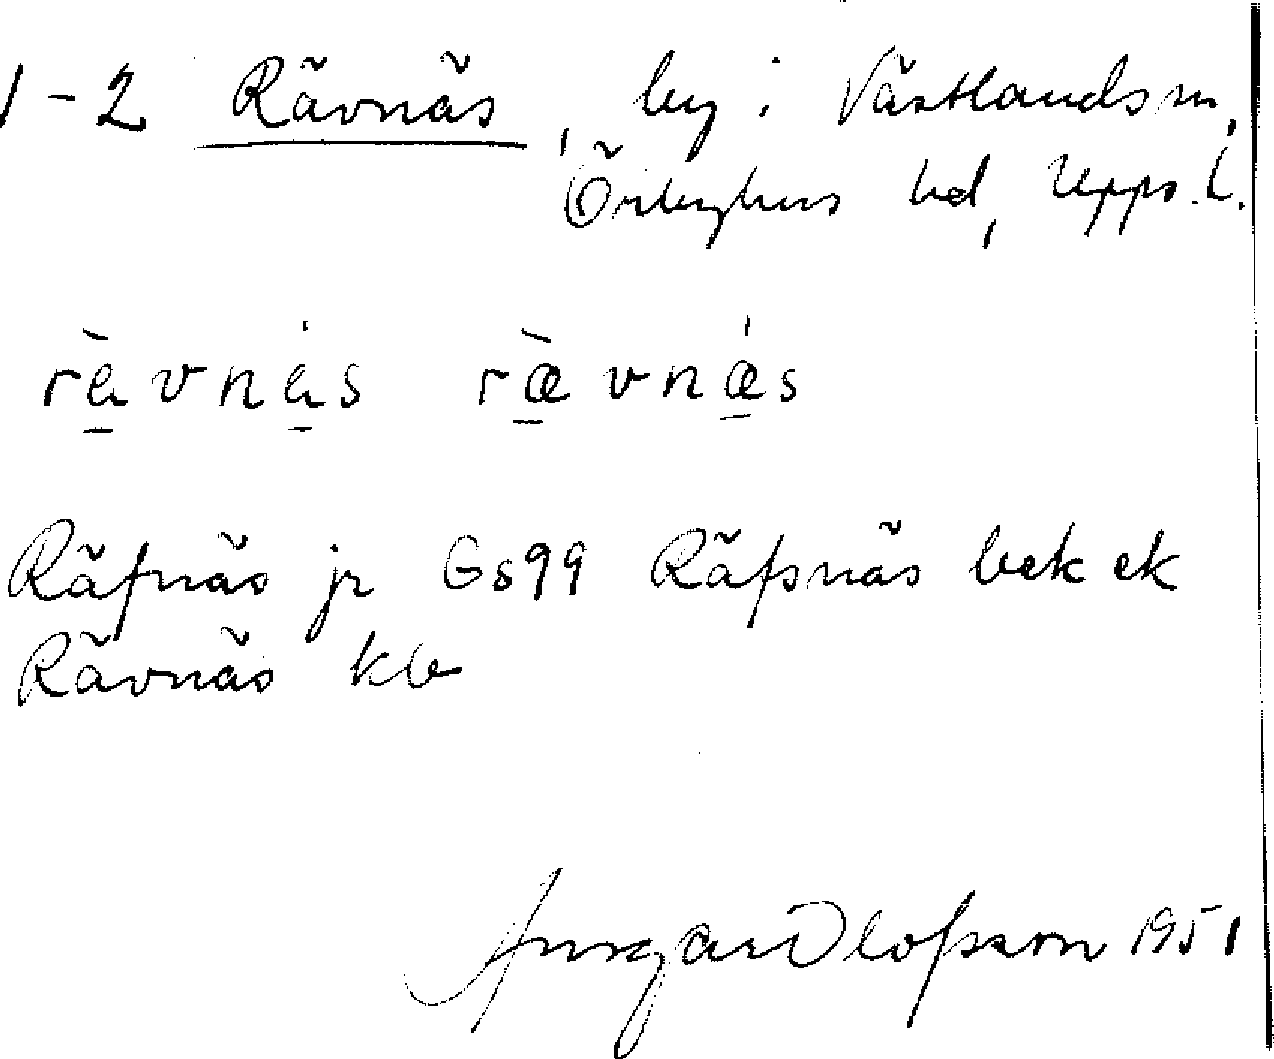 1-2 Rävnäs, by i Västlands sn,
Örbyhus hd, Upps. l.
rà̱vná̱s ræ̱̀vnǽ̱s
Räfnäs jr Gs99 Räfsnäs bek ek
Rävnäs kb
Ansgar Olofsson 1951